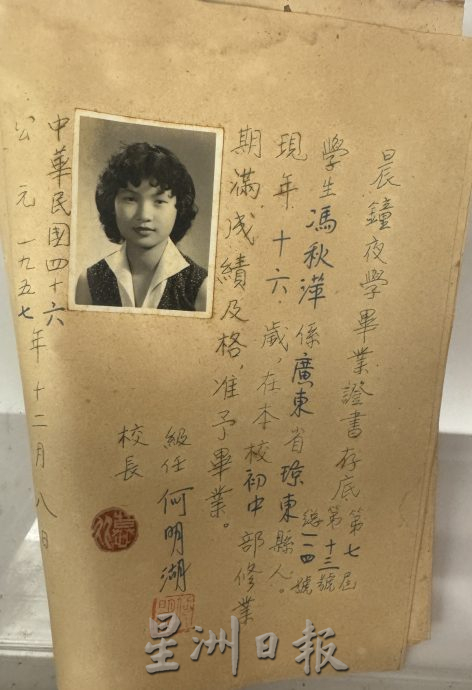 晨鐘夜學畢業證書存底
第七屆
第十三號
總一一四號
學生馮秋萍係廣東省瓊東縣人。
現年十六歲,在本校初中部修業
期滿成績及格,准予畢業。
級任何明湖
校長
中華民國四十六
公元一九五七年十二月八日
星洲日報